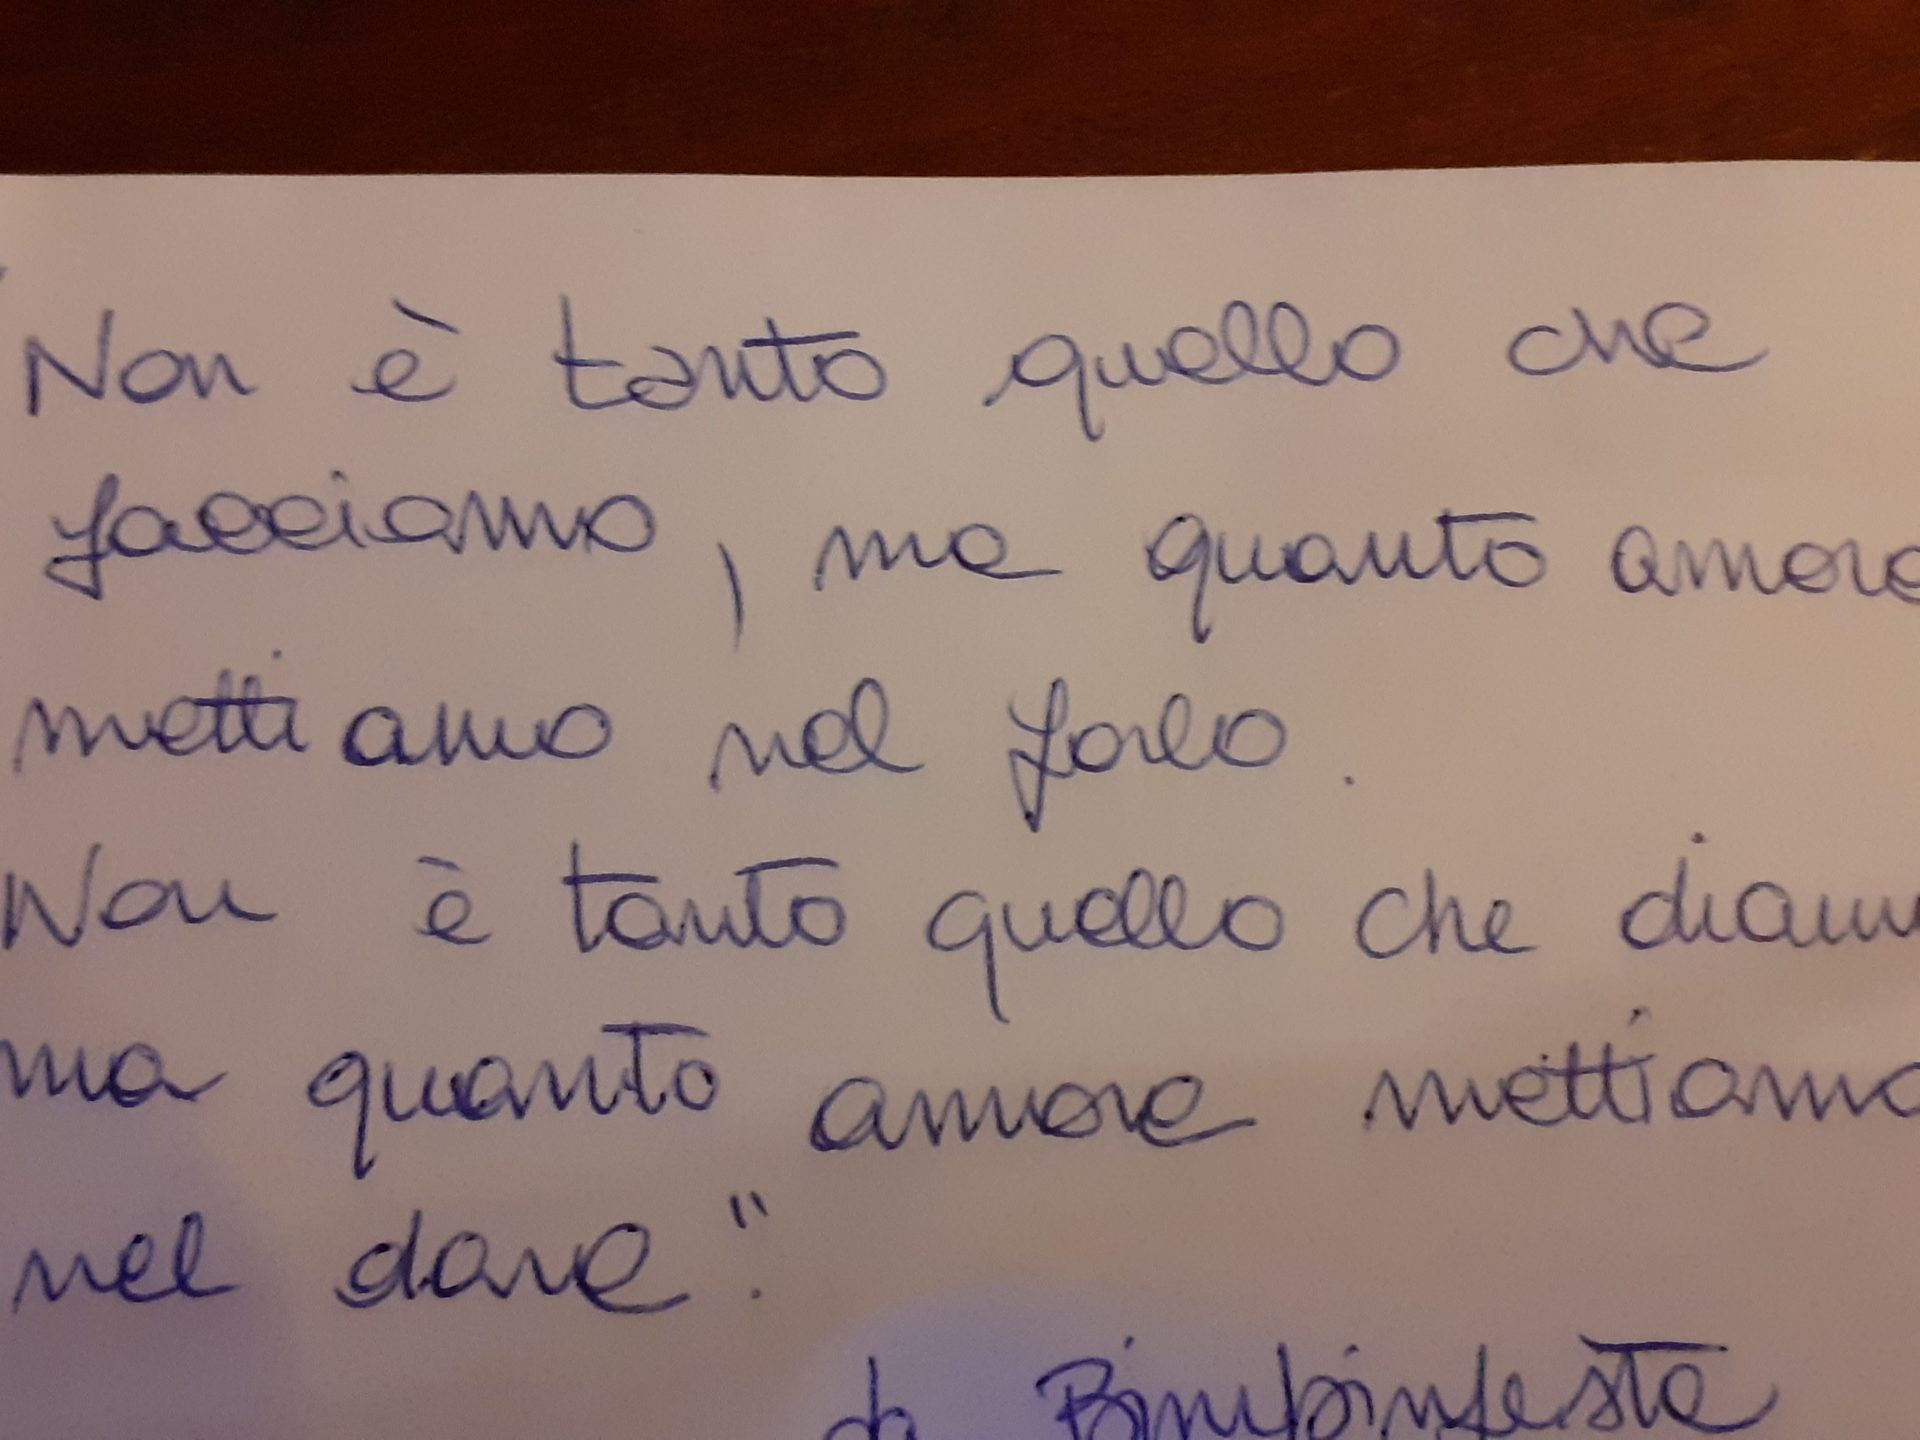 Non è tanto quello che
facciamo, ma quanto amore
mettiamo nel farlo.
Non è tanto quello che diam
ma quanto amore mettiamo
nel dare".
da Bimbinfesta